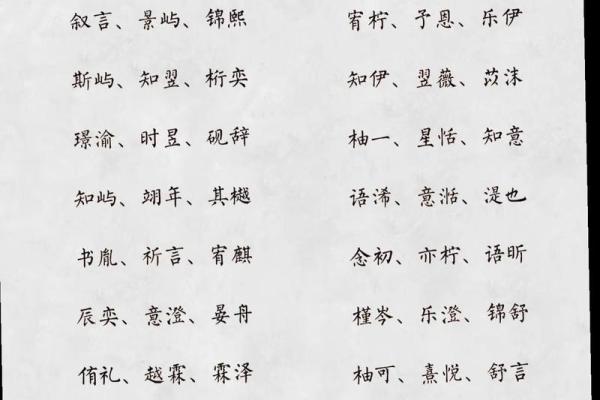 叙言、景屿、锦熙
宥柠、予恩、乐伊
斯屿、知翌、桁奕
知伊、翌薇、苡沫
璟渝、时昱、砚辞
柚一、星恬、知意
知屿、翊年、其樾
语浠、意湉、湜也
书胤、祈言、宥麒
念初、亦柠、语昕
辰奕、意澄、晏舟
槿岑、乐澄、锦舒
侑礼、越霖、霖泽
柚可、熹悦、舒言